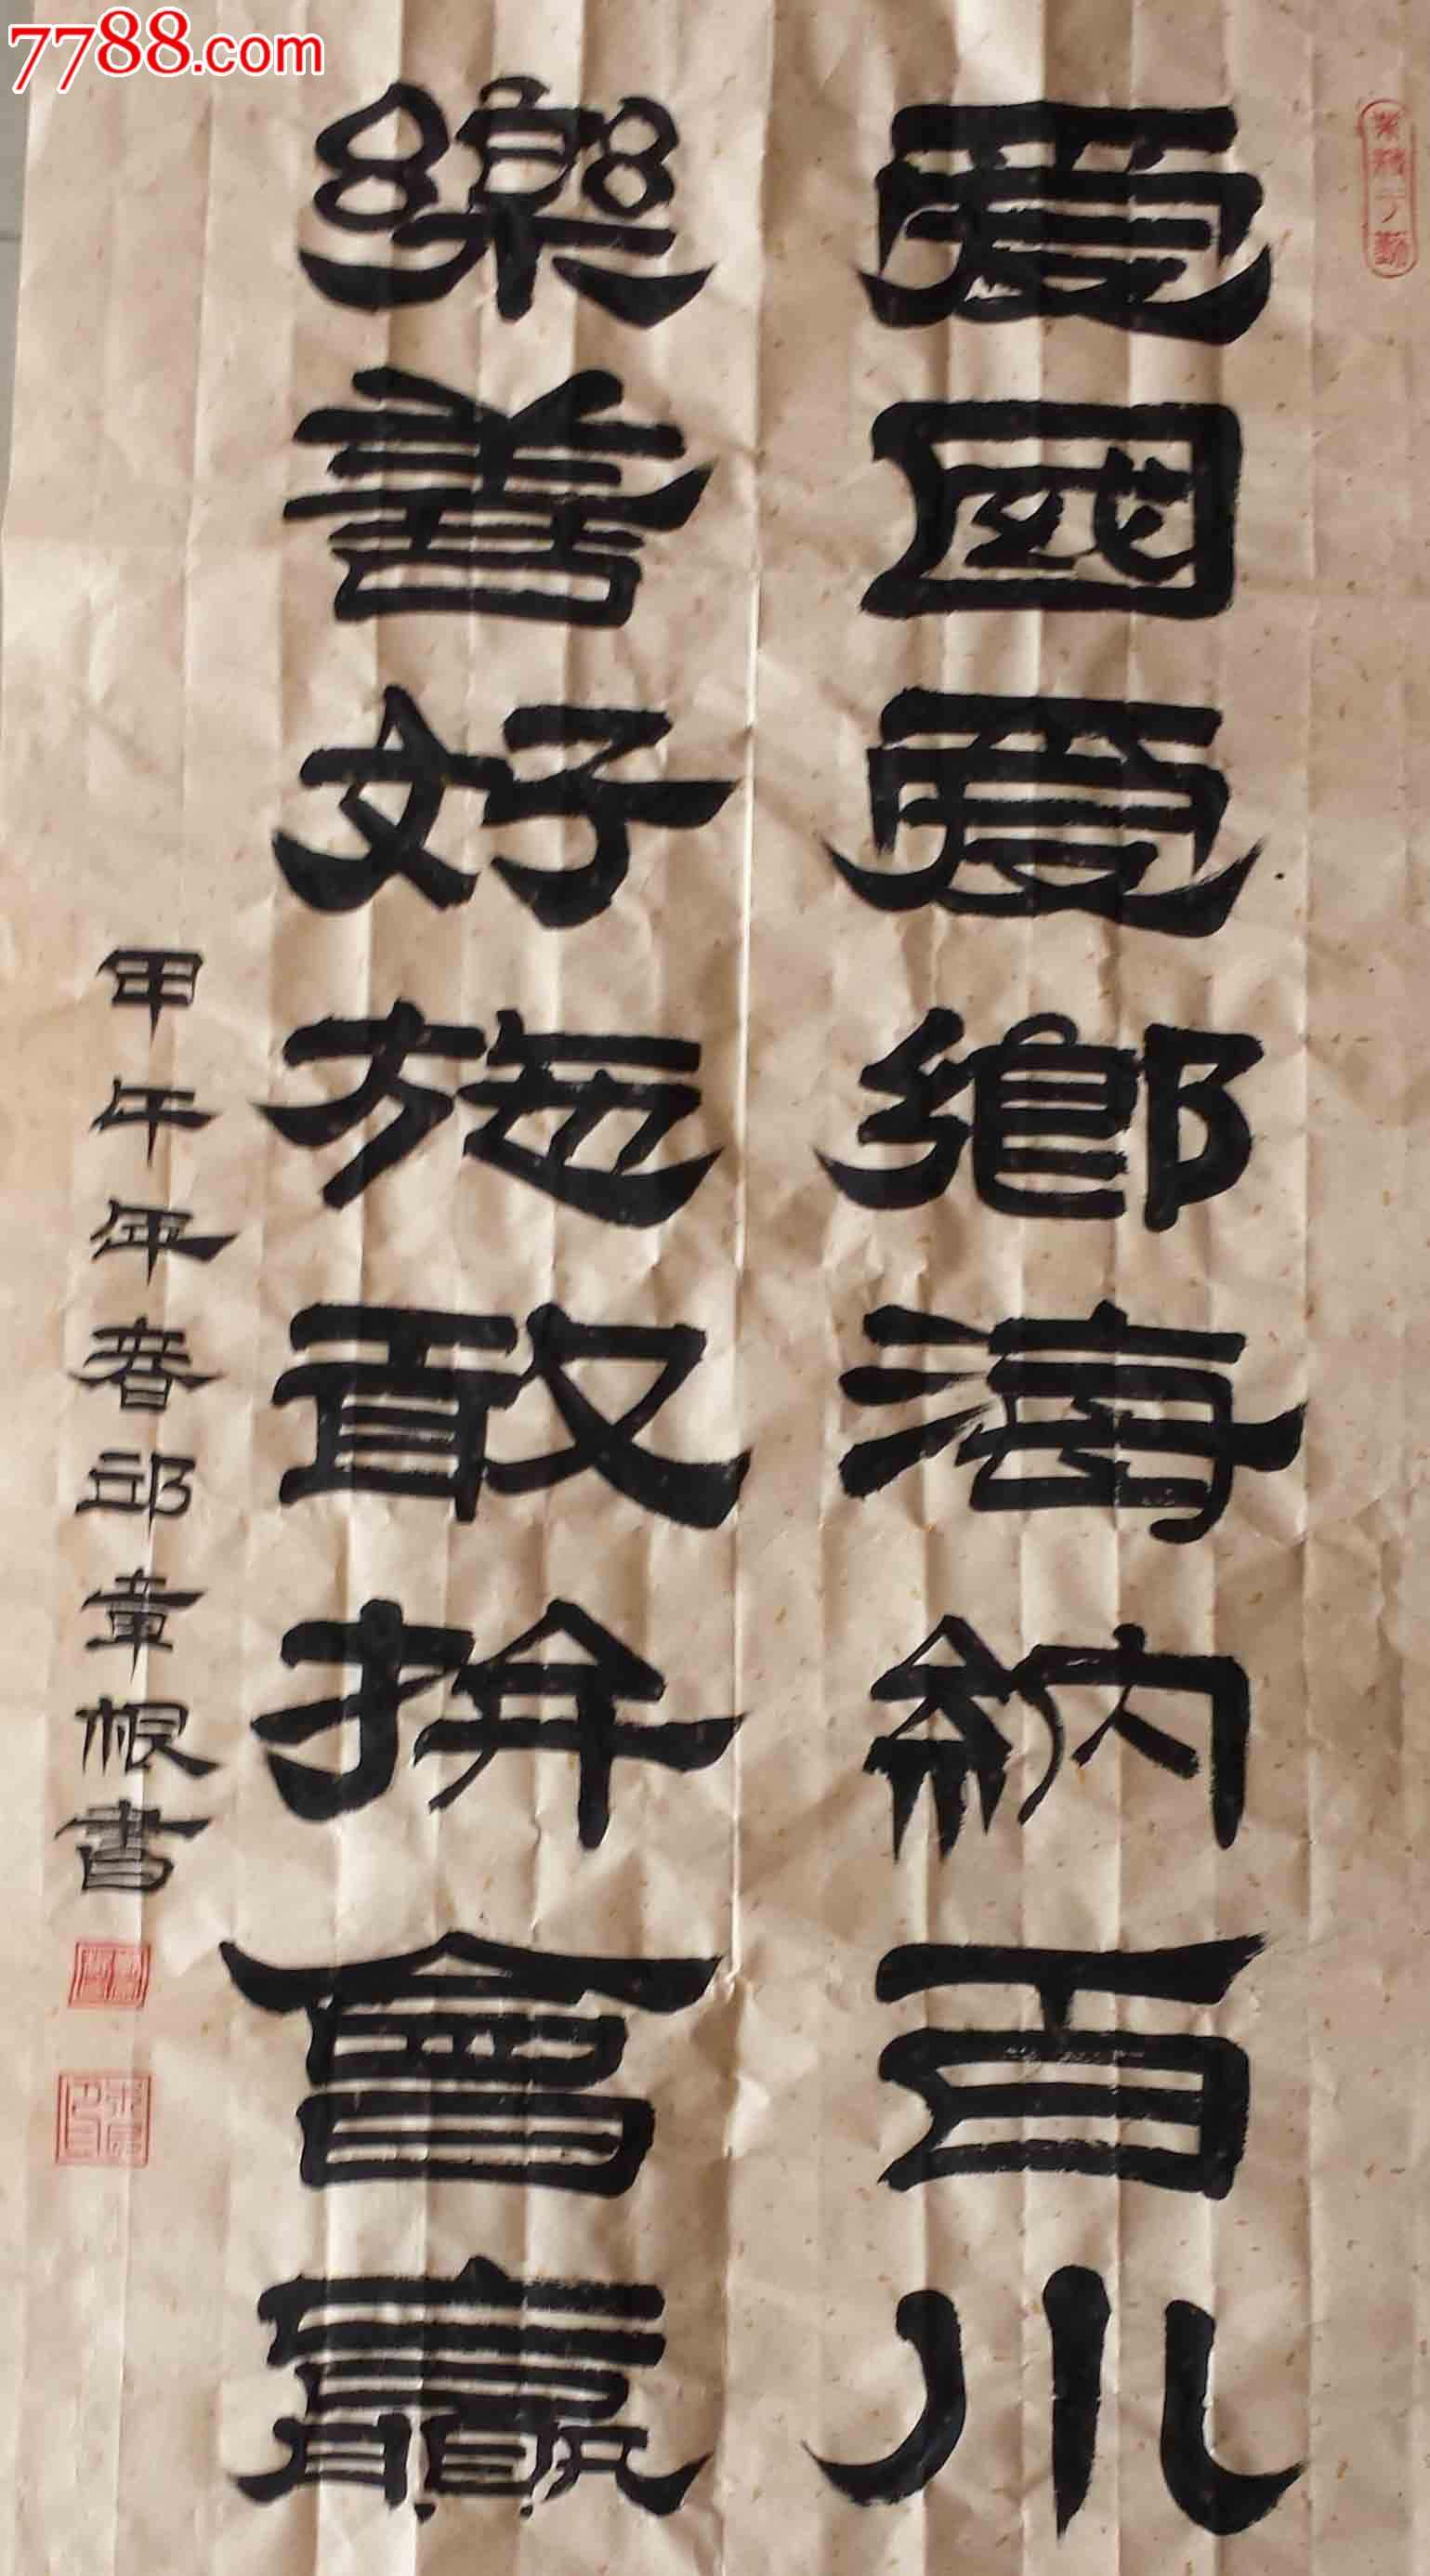 7788.com
業精于勤
愛國愛鄉海納百川
樂善好施敢拚會贏
甲午年春邱章根書